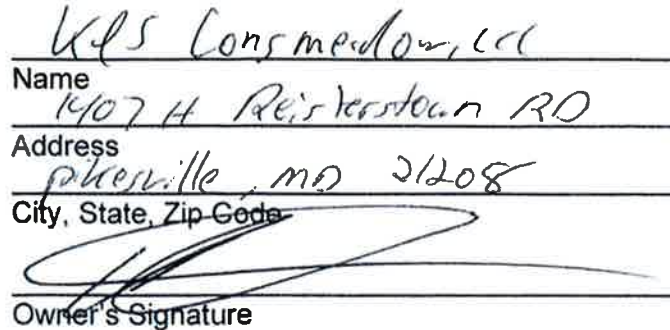 KLS Longmeadow, LLC
Name
1407 H Reisterstown RD
Address
pikesville, MD 21208
City, State, Zip Code
Owner's Signature